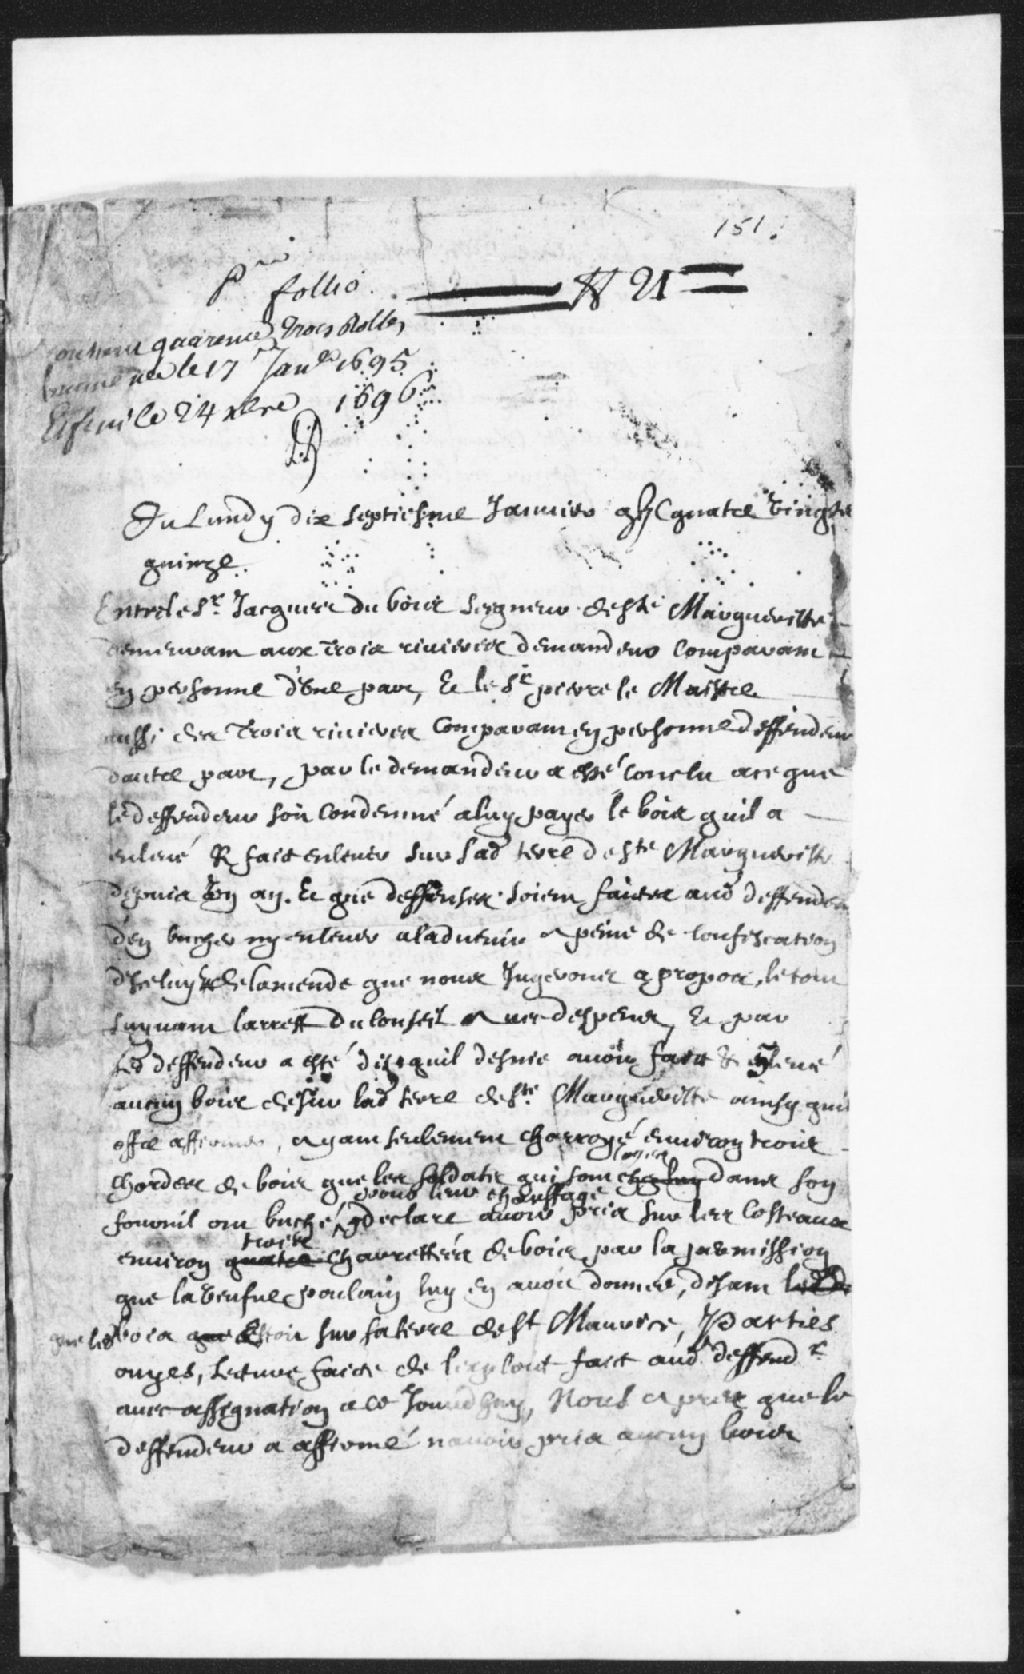 151.
P.re follio
N 21
contient quarente trois Rolles
commencé le 17 Janv. 1695
Et fini le 24 xbre 1696
Du Lundy dix septiesme Januier gbjC quatre vingts
quinze.
Entre le Sr. Jacques du bois seigneur de Ste Margueritte
demeurant aux trois riuieres demandeur comparant
en personne d'une part, Et le Sr pierre le Maistre
aussi des trois riuieres comparant en personne deffendeur
dautre part, par le demandeur a esté conclu a ce que
le deffendeur soit condemné a luy payer le bois quil a
enleué & fait enleuer sur sad terre de Ste Margueritte
depuis un an. Et que deffenses soient faites aud deffendeur
d'en bucher ny enleuer a laduenir a peine de confiscation
d'iceluy & de lamende que nous Jugerons a propos, le tout
suyuant larrest du conseil auec despens, Et par
led deffendeur a esté dit quil desnie auoir fait & enleué
aucun bois dessur lad terre de Ste. Marguerite ainsy quil
offre affirmer, ayant seulement charroyé enuiron trois
chordes de bois que les soldats qui sont logés dans son
pour leur chauffage
fournil ont buché, declare auoir pris sur les costeaux
trois
enuiron quatre charrettées de bois par la permission
que la Veufue poulain luy en auoit donnée, disant
que les bois que estoit sur sa terre de St Maurice, Parties
ouyes, lecture faite de lexploit fait aud deffendr
auec assignation a ce Jourdhuy, Nous apres que le
deffendeur a affirmé nauoir pris aucun bois